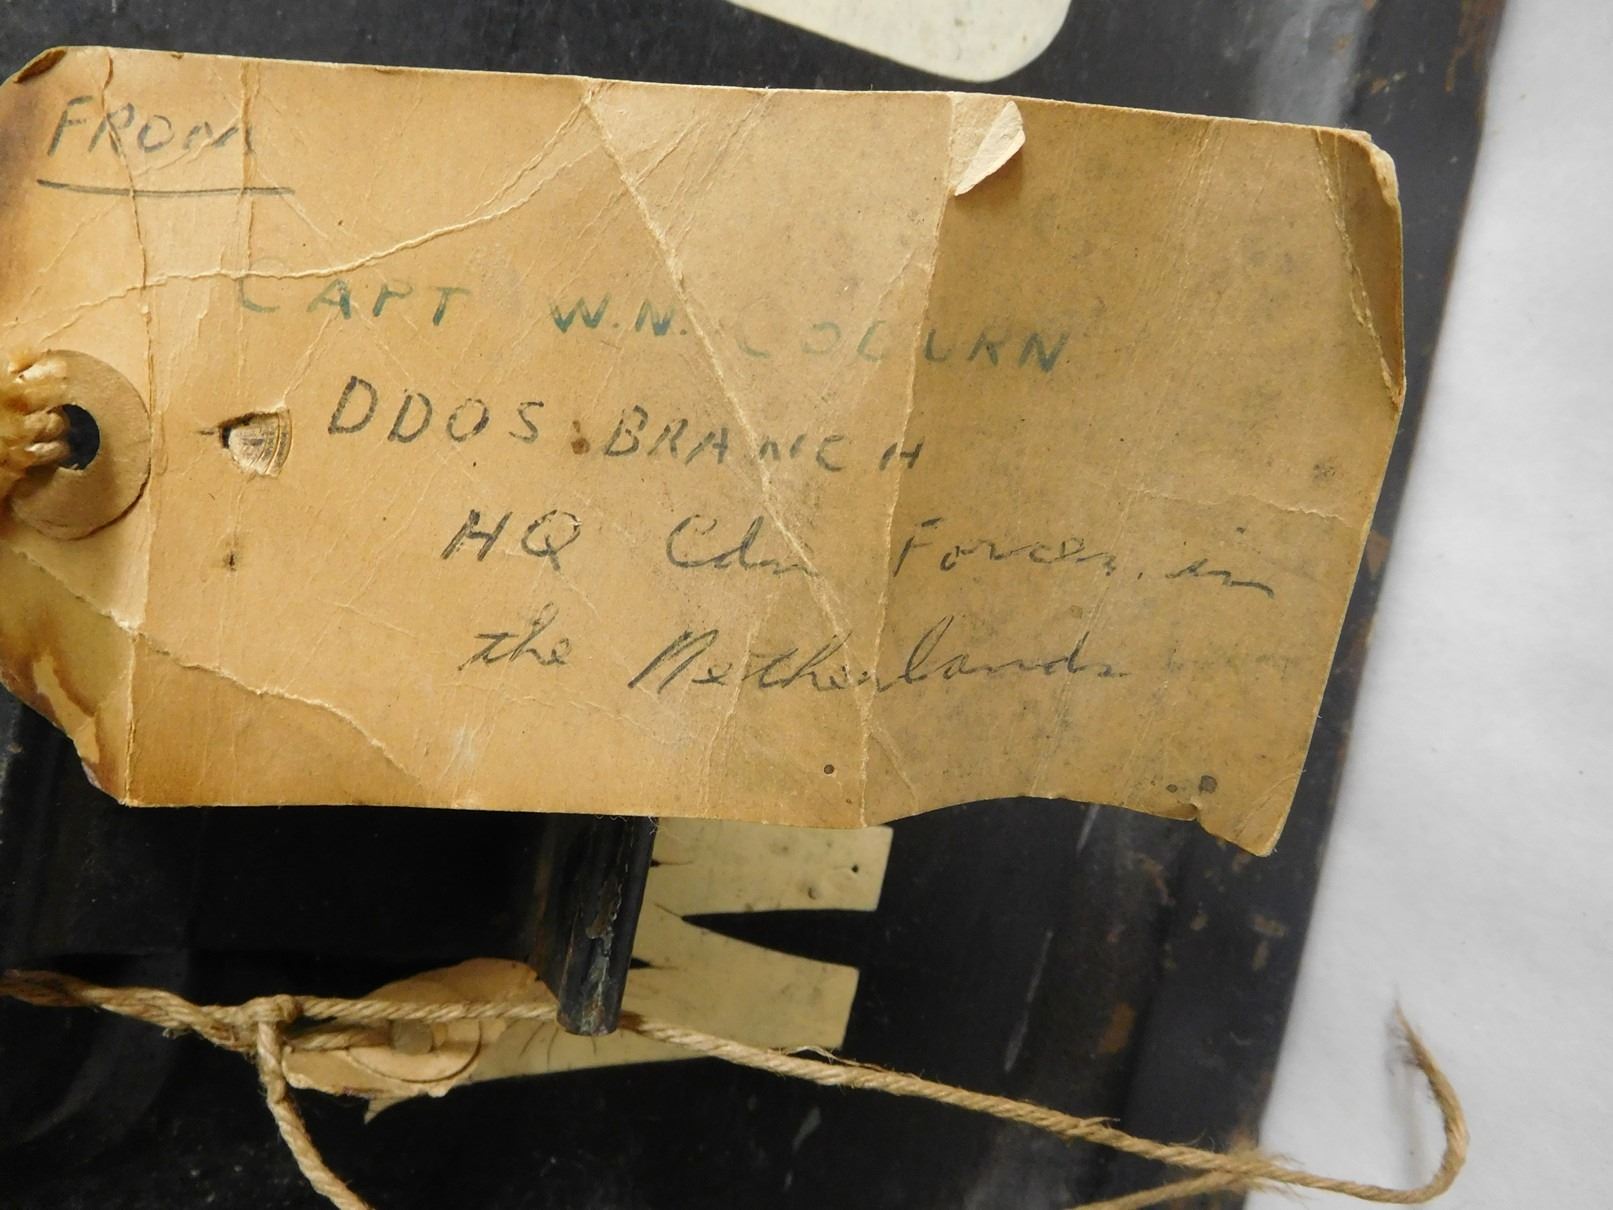 FROM
CAPT W.N. COBURN
DDOS. BRANCH
HQ Cdn Forces in
the Netherlands